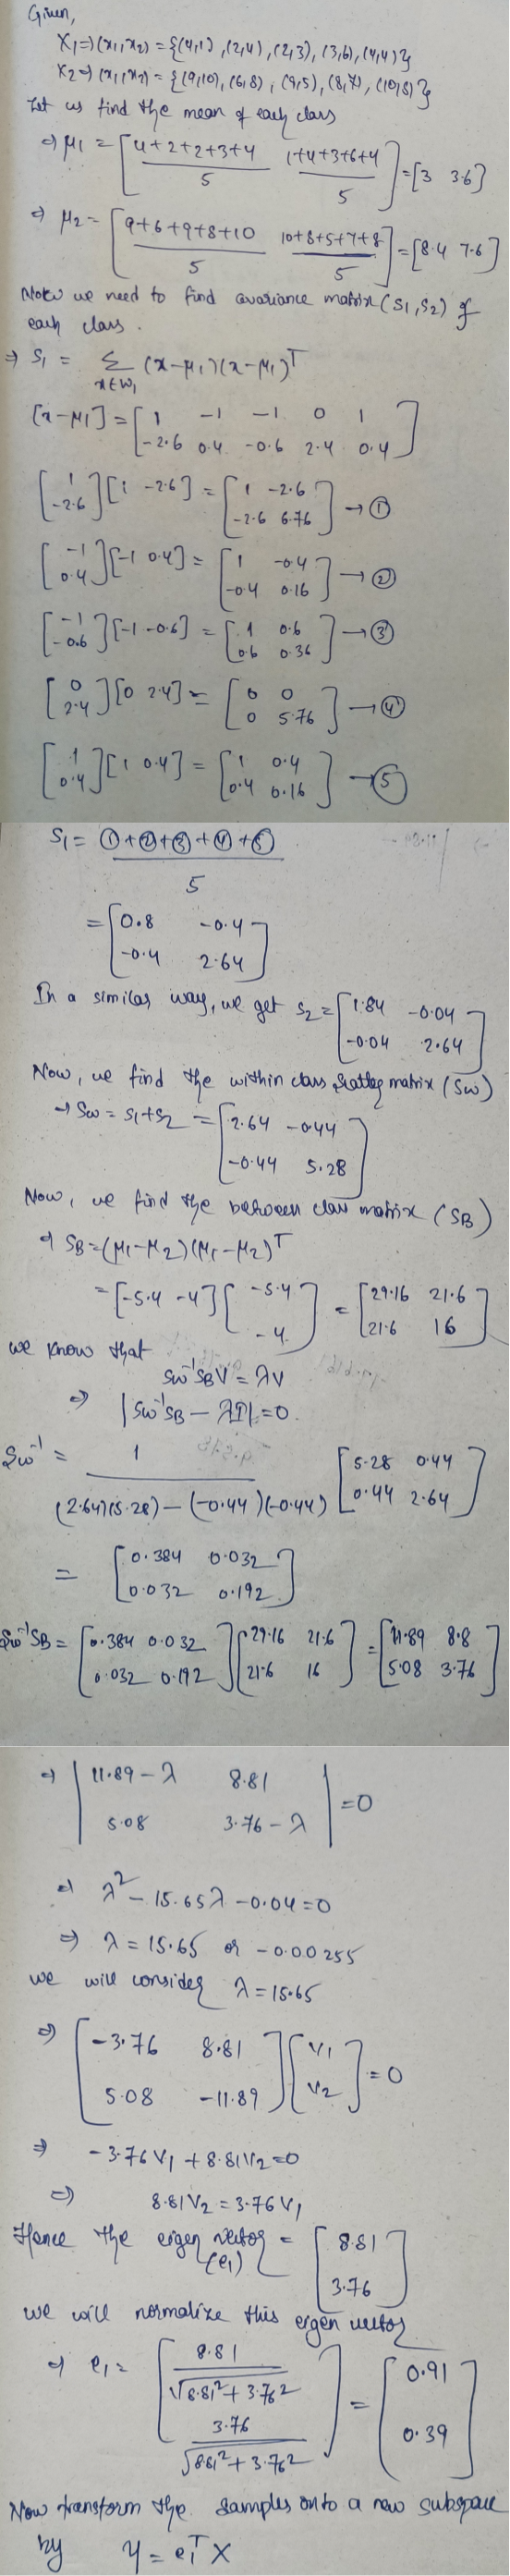 Given,
X1 => (x1, x2) = {(4,1), (2,4), (2,3), (3,6), (4,4)}
X2 => (x1, x2) = {(9,10), (6,8), (9,5), (8,7), (10,8)}
Let us find the mean of each class
⇒ μ1 = [ (4+2+2+3+4)/5   (1+4+3+6+4)/5 ] = [3 3.6]
⇒ μ2 = [ (9+6+9+8+10)/5   (10+8+5+7+8)/5 ] = [8.4 7.6]
Now we need to find covariance matrix (S1, S2) of
each class.
⇒ S1 = Σ_{x∈W1} (x-μ1)(x-μ1)^T
[x-μ1] = [ 1 -1 -1 0 1 ; -2.6 0.4 -0.6 2.4 0.4 ]
[ 1 ; -2.6 ] [1 -2.6] = [ 1 -2.6 ; -2.6 6.76 ] → ①
[ -1 ; 0.4 ] [-1 0.4] = [ 1 -0.4 ; -0.4 0.16 ] → ②
[ -1 ; -0.6 ] [-1 -0.6] = [ 1 0.6 ; 0.6 0.36 ] → ③
[ 0 ; 2.4 ] [0 2.4] = [ 0 0 ; 0 5.76 ] → ④
[ 1 ; 0.4 ] [1 0.4] = [ 1 0.4 ; 0.4 0.16 ] → ⑤
S1 = (①+②+③+④+⑤)/5
= [ 0.8 -0.4 ; -0.4 2.64 ]
In a similar way, we get S2 = [ 1.84 -0.04 ; -0.04 2.64 ]
Now, we find the within class scatter matrix (Sw)
→ Sw = S1+S2 = [ 2.64 -0.44 ; -0.44 5.28 ]
Now, we find the between class matrix (SB)
⇒ SB = (μ1-μ2)(μ1-μ2)^T
= [-5.4 -4] [ -5.4 ; -4 ] = [ 29.16 21.6 ; 21.6 16 ]
we know that
Sw^-1 SB V = λV
⇒ |Sw^-1 SB - λI| = 0.
Sw^-1 = 1/((2.64)(5.28) - (-0.44)(-0.44)) [ 5.28 0.44 ; 0.44 2.64 ]
= [ 0.384 0.032 ; 0.032 0.192 ]
Sw^-1 SB = [ 0.384 0.032 ; 0.032 0.192 ] [ 29.16 21.6 ; 21.6 16 ] = [ 11.89 8.8 ; 5.08 3.76 ]
⇒ | 11.89-λ 8.81 ; 5.08 3.76-λ | = 0
⇒ λ^2 - 15.65λ - 0.04 = 0
⇒ λ = 15.65 or -0.00255
we will consider λ = 15.65
⇒ [ -3.76 8.81 ; 5.08 -11.89 ] [ V1 ; V2 ] = 0
⇒ -3.76 V1 + 8.81 V2 = 0
⇒ 8.81 V2 = 3.76 V1
Hence the eigen vector (e1) = [ 8.81 ; 3.76 ]
we will normalize this eigen vector
⇒ e1 = [ 8.81/√(8.81^2+3.76^2) ; 3.76/√(8.81^2+3.76^2) ] = [ 0.91 ; 0.39 ]
Now transform the samples onto a new subspace
by y = e^T X